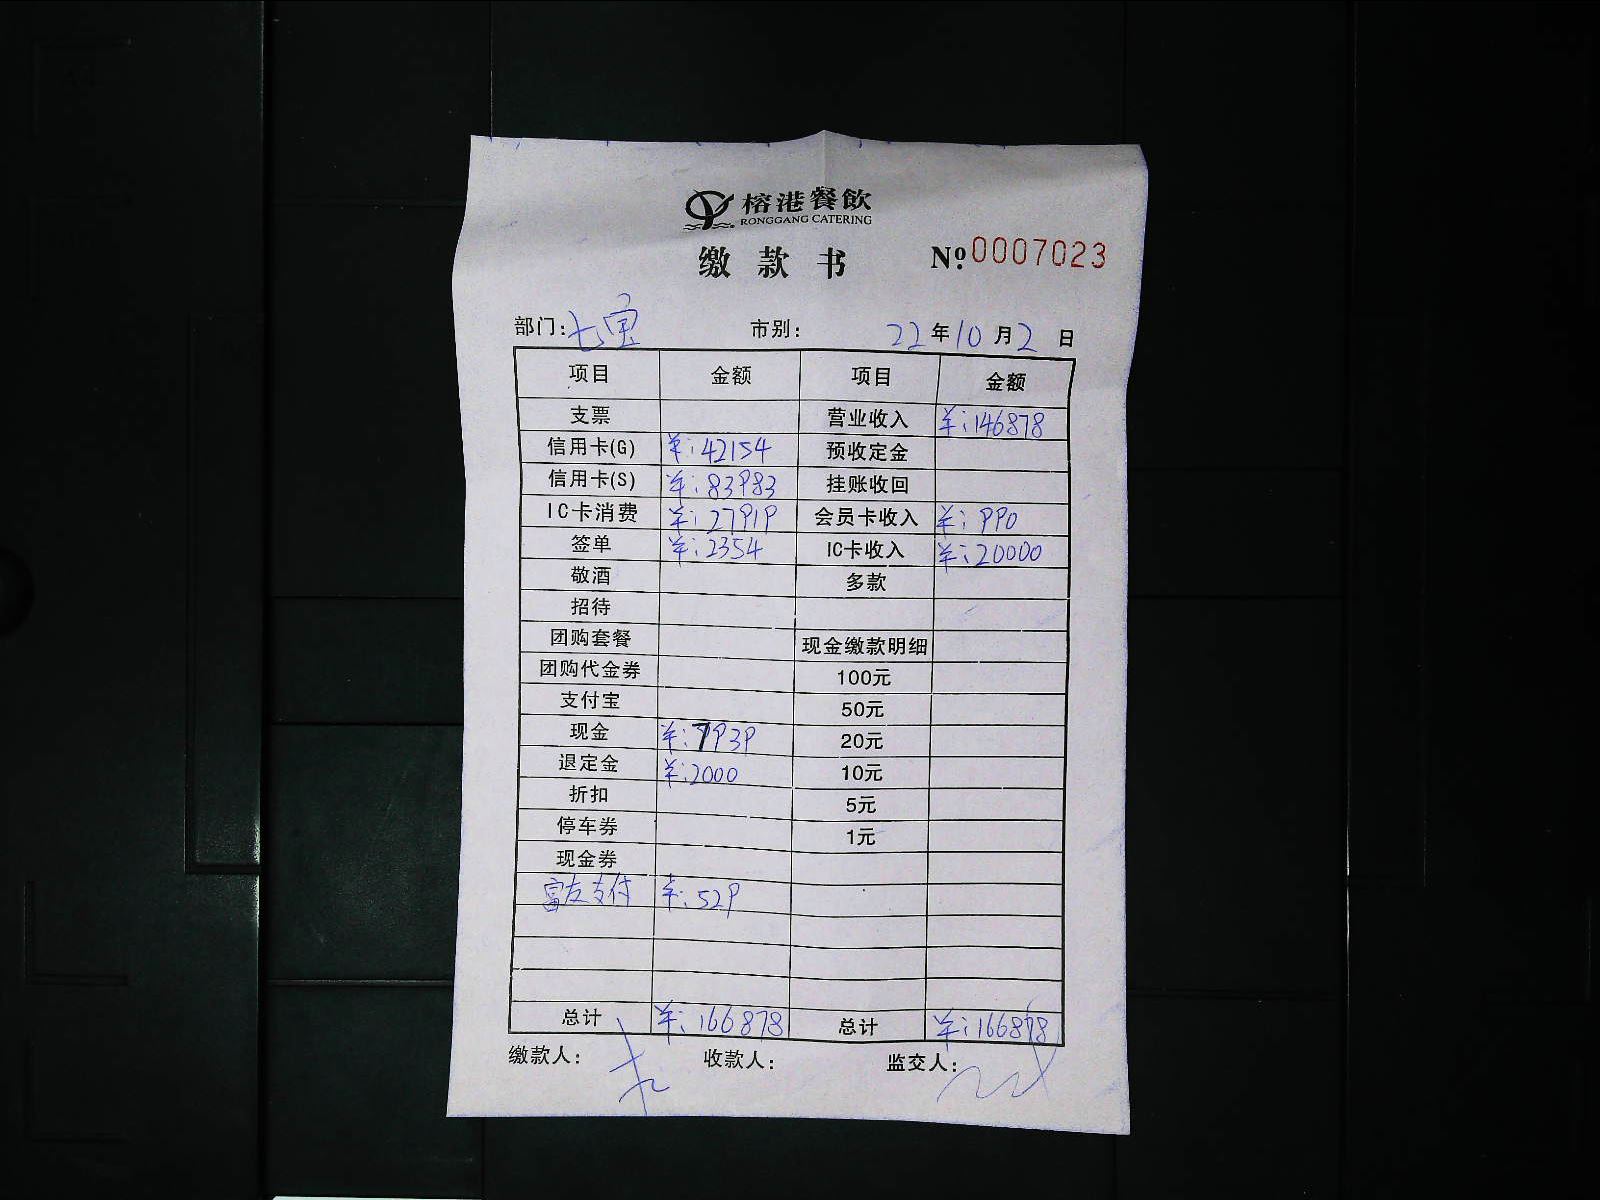 榕港餐飲
RONGGANG CATERING
缴款书 Nº.0007023
部门:七宝 市别: 22年10月2日
项目 金额 项目 金额
支票 营业收入 ¥:146878
信用卡(G) ¥:42154 预收定金
信用卡(S) ¥:83983 挂账收回
IC卡消费 ¥:27919 会员卡收入 ¥:990
签单 ¥:2354 IC卡收入 ¥:20000
敬酒 多款
招待
团购套餐 现金缴款明细
团购代金券 100元
支付宝 50元
现金 ¥:7939 20元
退定金 ¥:2000 10元
折扣 5元
停车券 1元
现金券
富友支付 ¥:529
总计 ¥:166878 总计 ¥:166878
缴款人: 收款人: 监交人: